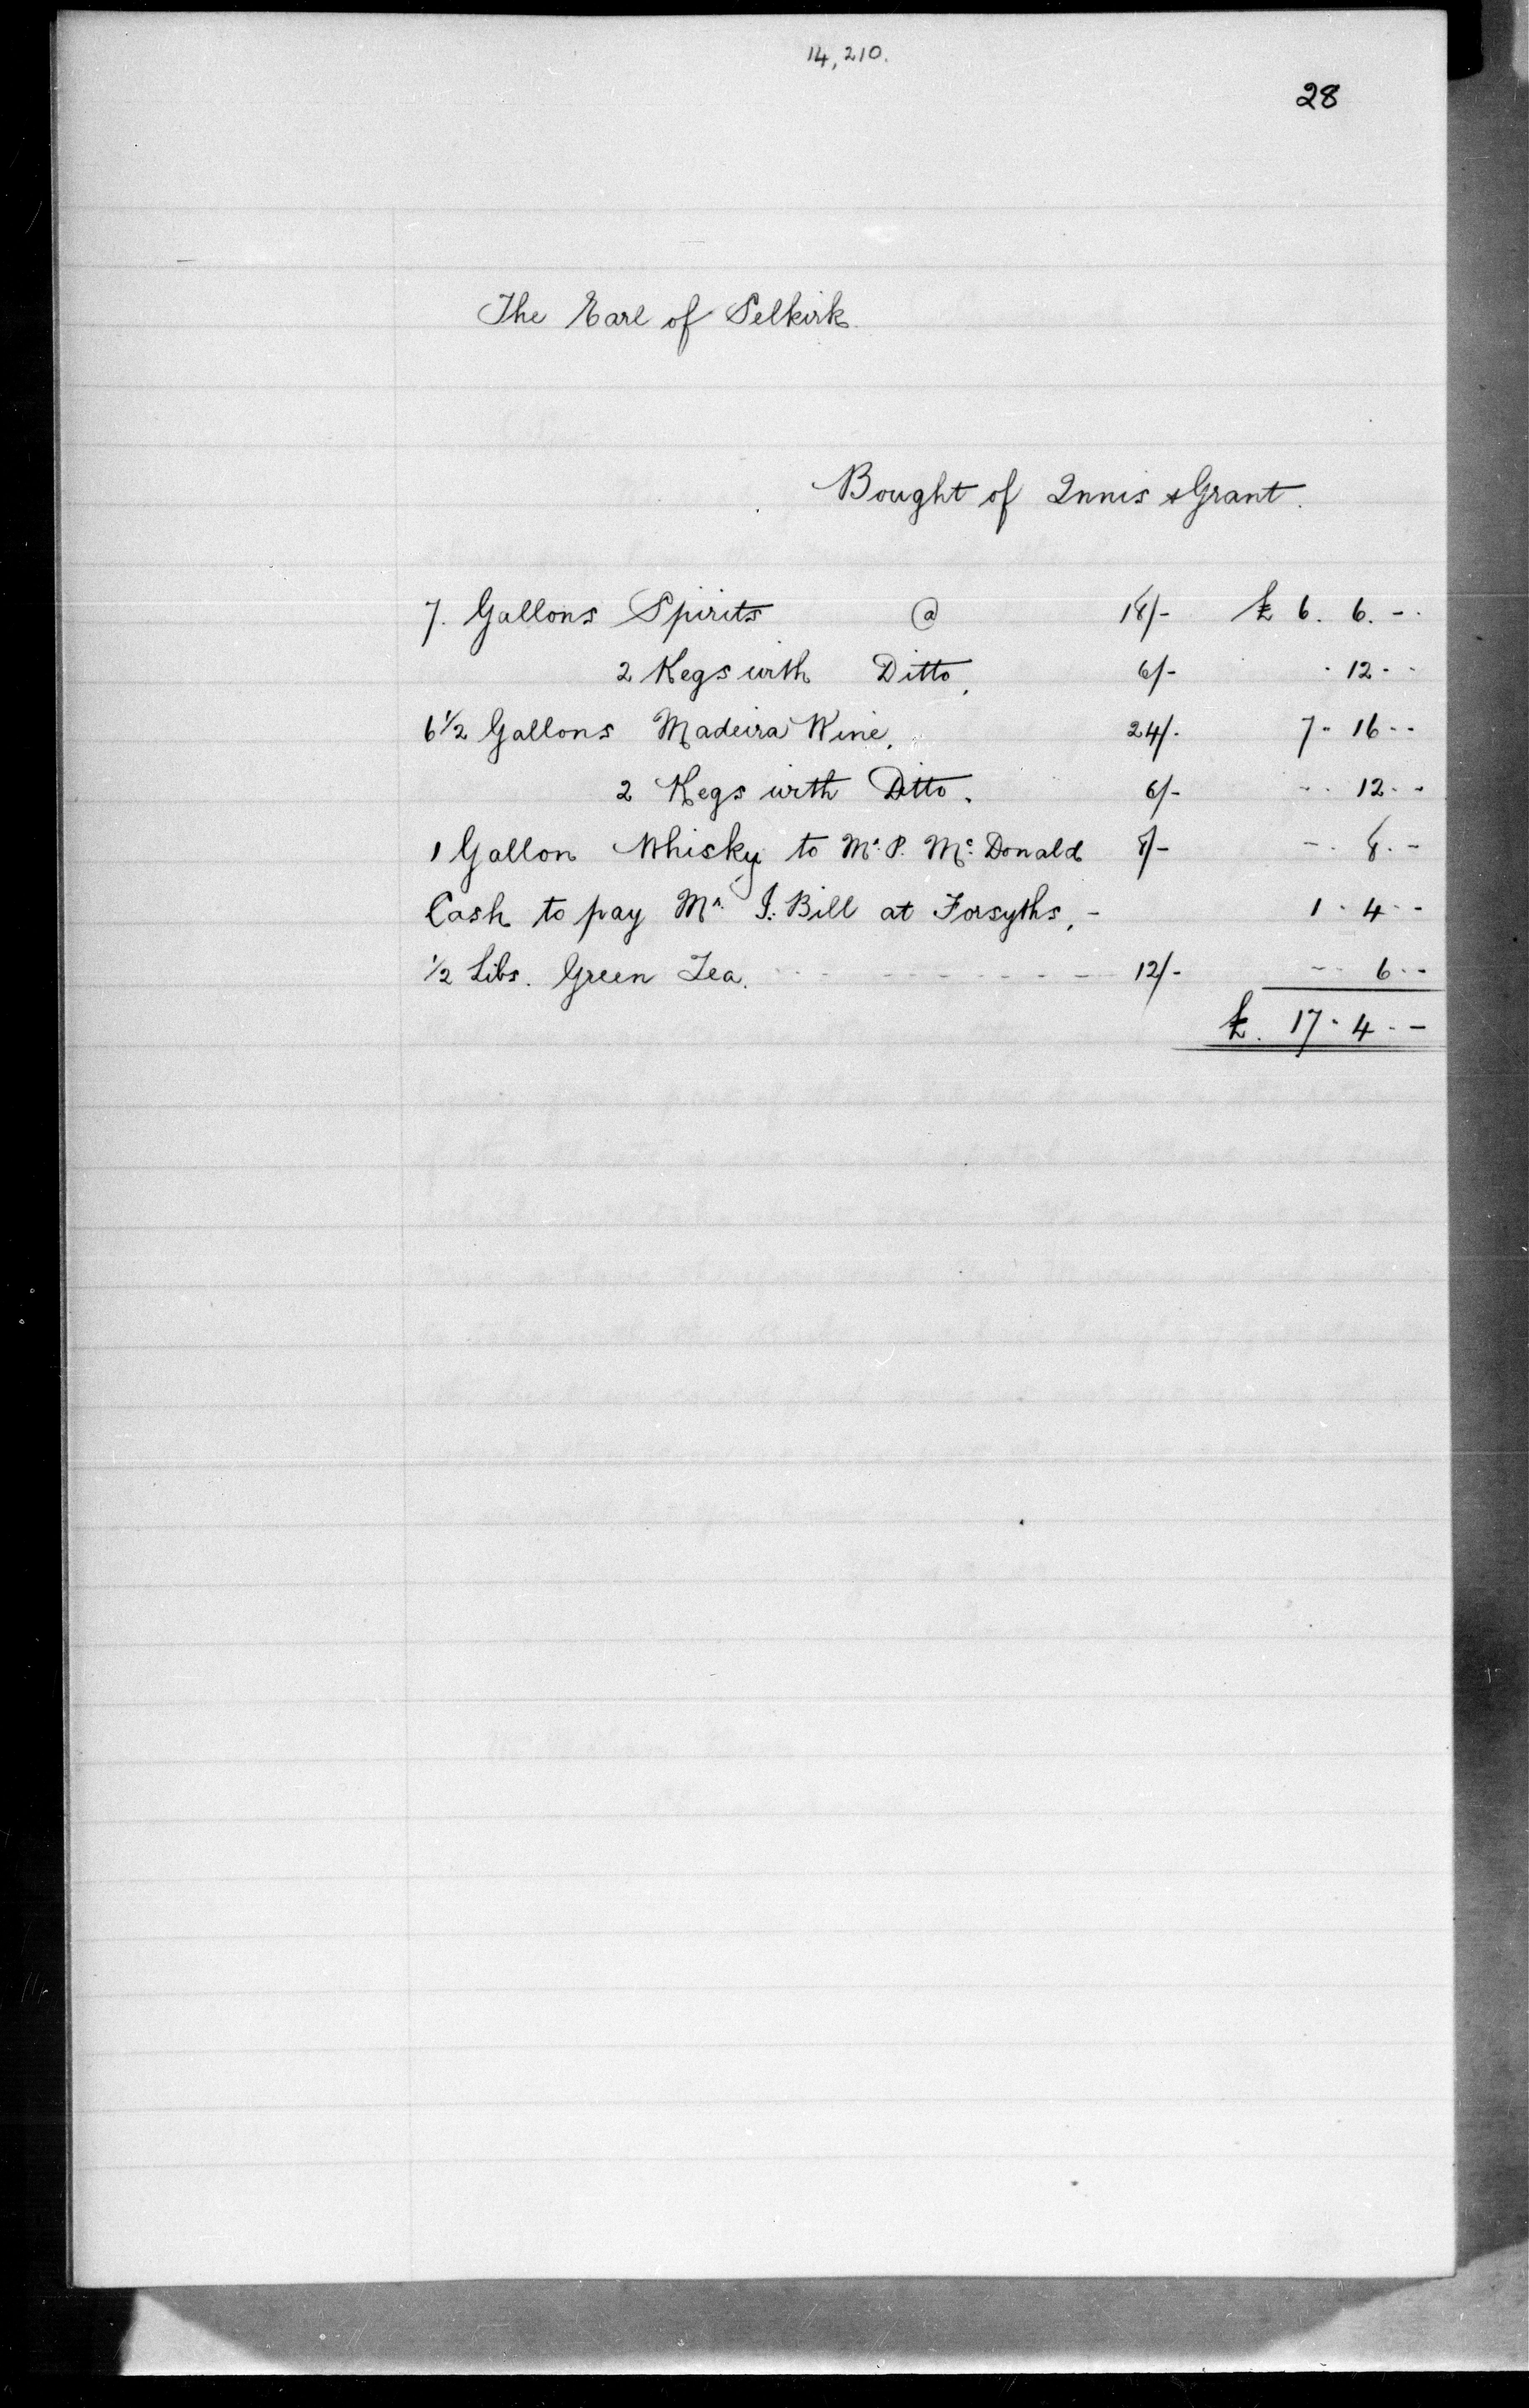 14,210.
28
The Earl of Selkirk.
Bought of Innis & Grant.
7. Gallons Spirits @ 18/- £ 6. 6. -.
2 Kegs with Ditto, 6/- . 12 - .
6 1/2 Gallons Madeira Wine, 24/- 7 - 16 - -
2 Kegs with Ditto. 6/- - . 12 - -
1 Gallon Whisky to Mr. P. Mc. Donald 8/- - . 8. -
Cash to pay Mr. J. Bill at Forsyths, - 1 - 4 - -
1/2 Libs. Green Tea. - - - - - - - - 12/- - - 6 - -
£. 17 - 4 - -